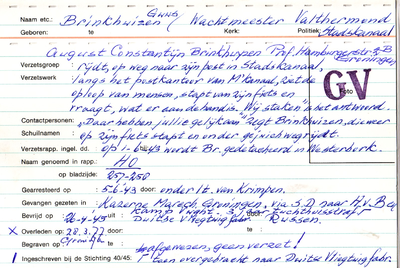 Naam etc.: Brinkhuizen Gwng / Wachtmeester Valthermond
Geboren: te Kerk: Politiek: Stadskanaal
August Constantijn Brinkhuizen Prof. Hamburgerstr. 3-B
Groningen
Verzetsgroep : rijdt, op weg naar zijn post in Stadskanaal,
Verzetswerk langs het postkantoor van M'kanaal, ziet de
oploop van mensen, stapt van zijn fiets en
vraagt, wat er aan de hand is. "Wij staken", is het antwoord.
Contactpersonen: "Daar hebben jullie gelijk aan" zegt Brinkhuizen, die weer
Schuilnamen : op zijn fiets stapt en onder gejuich wegrijdt.
Verzetsrapp. ingel. dd. op 1-6-43 wordt Br. gedetacheerd in Westerbork.
Naam genoemd in rapp.: AO
op bladzijde: 257-258
GV
Gearresteerd op : 5-6-43 door: onder lt. van Krimpen.
Gevangen gezeten in : Kazerne Maresch. Groningen, via S.D. naar H.v.B
Bevrijd op : 26-4-45 uit Kamp Vught. door: Tuchthuisstraf
Duitse Vliegtuig fabr. Russen.
x Overleden op: 28.3.77 door: te:
Begraven op : te: afgewezen, geen verzet!
Ingeschreven bij de Stichting 40/45: overgebracht naar Duitse Vliegtuigfabr.